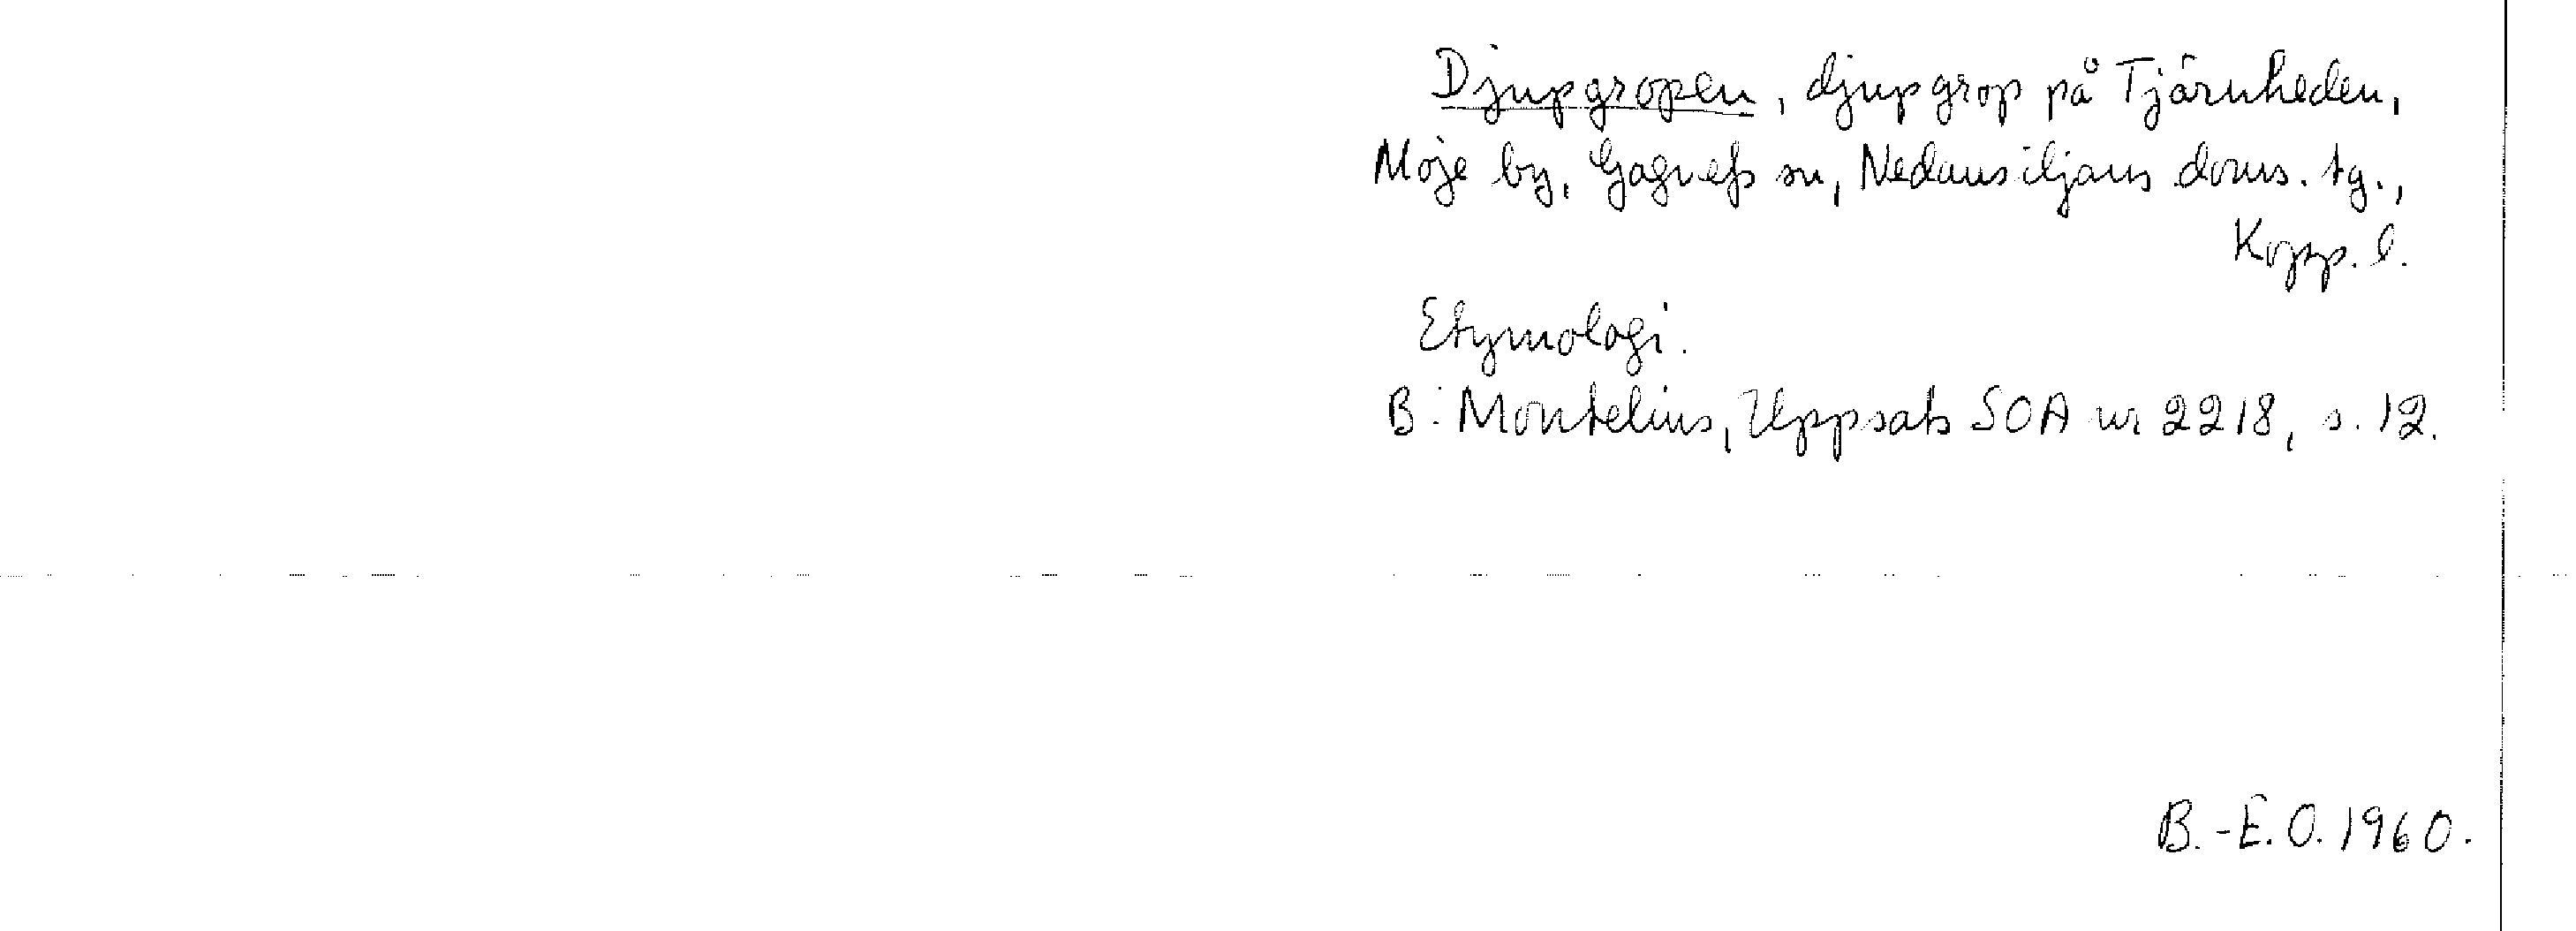 Djupgropen, djup grop på Tjärnheden,
Moje by, Gagnefs sn, Nedansiljans doms. tg.,
Kopp. l.
Etymologi.
B: Montelius, Uppsats SOA nr 2218, s. 12.
B.-E.O. 1960.